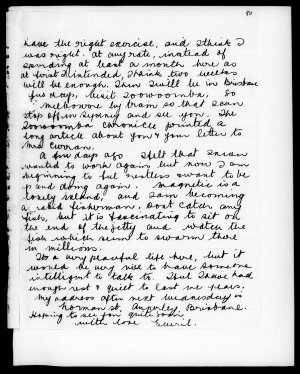 50
have the right exercise, and I think I
was right. At any rate, instead of
spending at least a month here as
at first I intended, I think two weeks
will be enough. Then I will be in Brisbane
few days, visit Toowoomba, to
Melbourne by train so that I can
stop off in Sydney and see you. The
Toowoomba Chronicle printed a
long article about you & your letter to
Mrs Curran.
A few days ago I felt that I never
wanted to work again but now I am
beginning to feel restless & want to be
up and doing again. Magnetic is a
lovely island, and I am becoming
a keen fisherman. Dont catch any
fish, but it is fascinating to sit on
the end of the jetty and watch the
fish which seem to swarm there
in millions.
Its a very peaceful life here, but it
would be very nice to have someone
intelligent to talk to. I feel I have had
enough rest & quiet to last me years.
My address after next Wednesday is
Norman St. Annerley, Brisbane.
Hoping to see you quite soon
with love